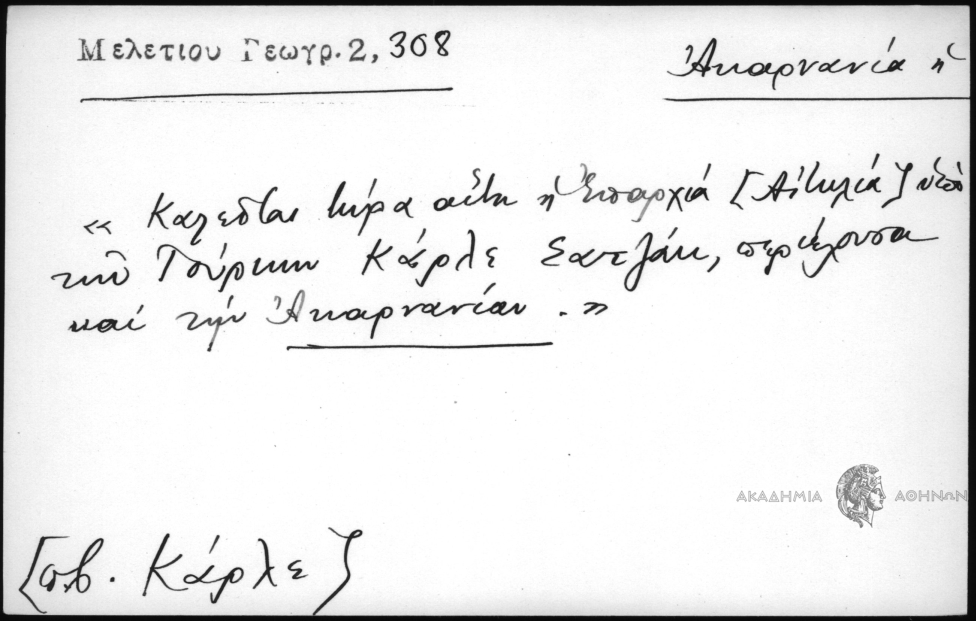 Μελετίου Γεωγρ. 2, 308
Ἀκαρνανία ἡ
« Καλεῖται τώρα αὕτη ἡ Ἐπαρχία [Αἰτωλία] ὑπὸ
τῶν Τούρκων Κάρλε Σαντζάκ, περιέχουσα
καὶ τὴν Ἀκαρνανίαν. »
ΑΚΑΔΗΜΙΑ ΑΘΗΝΩΝ
[πβ. Κάρλε]